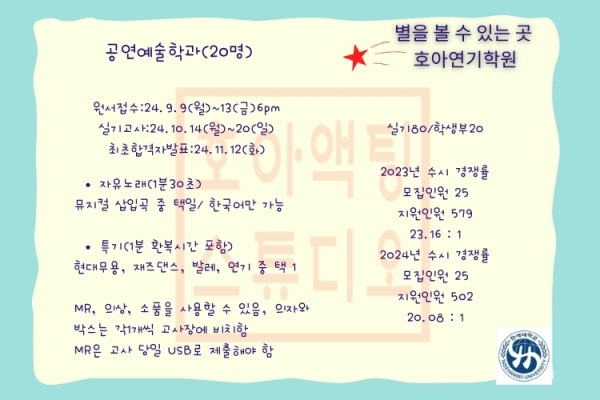 별을 볼 수 있는 곳
호아연기학원
공연예술학과(20명)
원서접수:24.9.9(월)~13(금)6pm
실기고사:24.10.14(월)~20(일)
최초합격자발표:24.11.12(화)
• 자유노래(1분30초)
뮤지컬 삽입곡 중 택일/ 한국어만 가능
• 특기(1분 환복시간 포함)
현대무용, 재즈댄스, 발레, 연기 중 택 1
MR, 의상, 소품을 사용할 수 있음, 의자와
박스는 각1개씩 고사장에 비치함
MR은 고사 당일 USB로 제출해야 함
실기80/학생부20
2023년 수시 경쟁률
모집인원 25
지원인원 579
23.16 : 1
2024년 수시 경쟁률
모집인원 25
지원인원 502
20.08 : 1
호아액팅
스튜디오
한세대학교
HANSEI UNIVERSITY